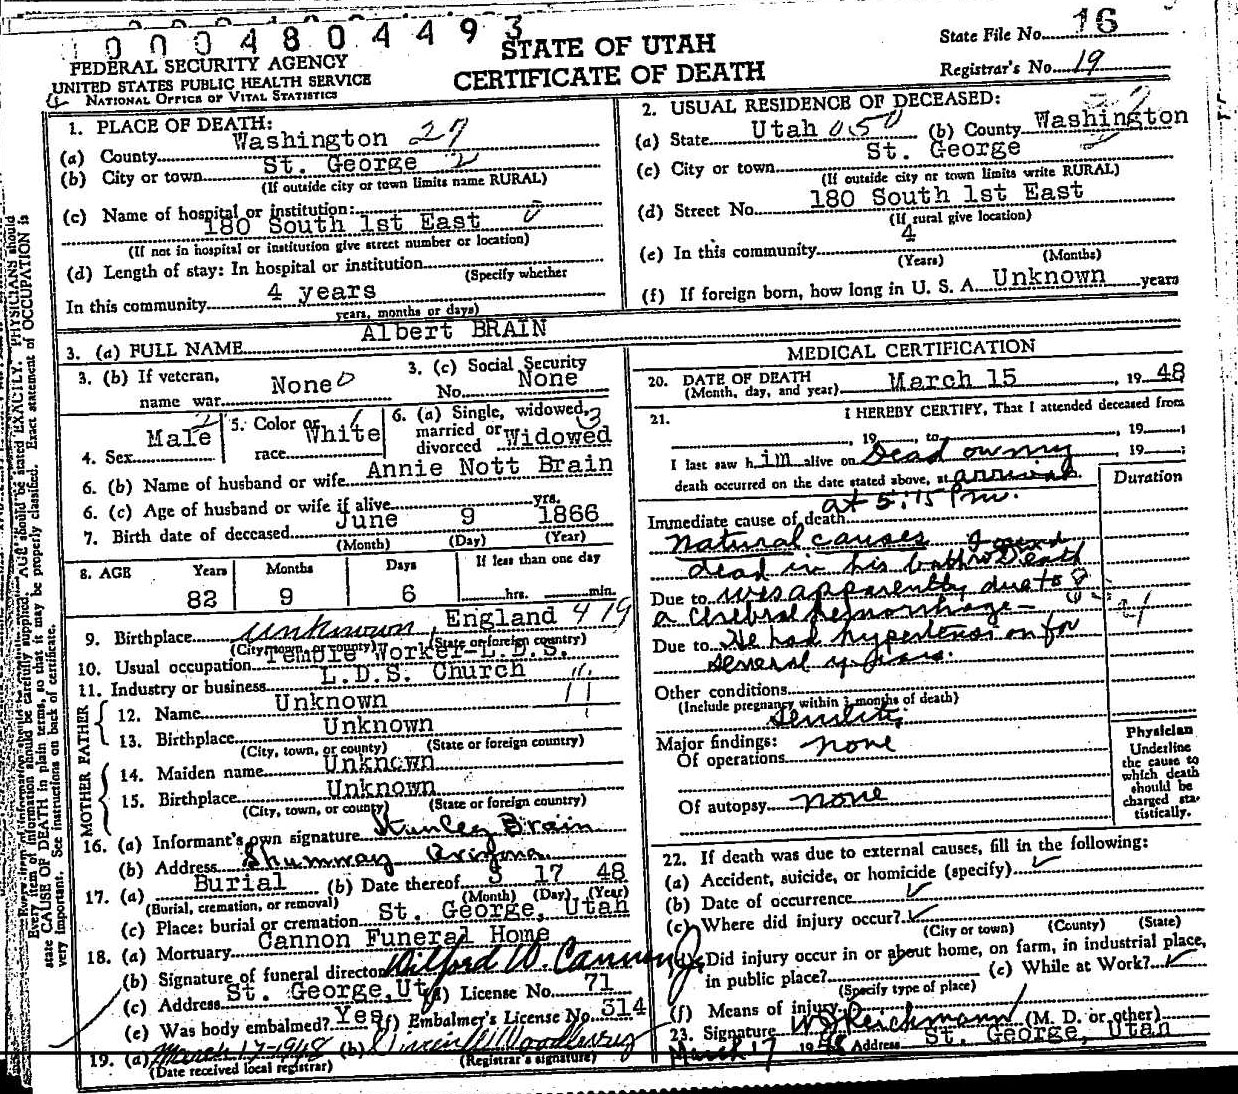 0 0 0 4 8 0 4 4 9 3
FEDERAL SECURITY AGENCY
UNITED STATES PUBLIC HEALTH SERVICE
NATIONAL OFFICE OF VITAL STATISTICS
STATE OF UTAH
CERTIFICATE OF DEATH
State File No. 16
Registrar's No. 19
1. PLACE OF DEATH:
(a) County Washington 27
(b) City or town St. George 2
(If outside city or town limits name RURAL)
(c) Name of hospital or institution:
180 South 1st East 0
(If not in hospital or institution give street number or location)
(d) Length of stay: In hospital or institution
(Specify whether
In this community 4 years
years, months or days)
2. USUAL RESIDENCE OF DECEASED:
(a) State Utah 050 (b) County Washington
(c) City or town St. George
(If outside city or town limits write RURAL)
(d) Street No. 180 South 1st East
(If rural give location)
(e) In this community 4
(Years) (Months)
(f) If foreign born, how long in U. S. A. Unknown years
3. (a) FULL NAME Albert BRAIN
3. (b) If veteran, name war None
3. (c) Social Security No. None
4. Sex Male
5. Color or race White
6. (a) Single, widowed, married or divorced Widowed 3
6. (b) Name of husband or wife Annie Nott Brain
6. (c) Age of husband or wife if alive yrs.
7. Birth date of deceased June 9 1866
(Month) (Day) (Year)
8. AGE Years Months Days If less than one day
82 9 6 hrs. min.
9. Birthplace Unknown, England 419
(City, town, or county) (State or foreign country)
10. Usual occupation Temple Worker L.D.S.
11. Industry or business L.D.S. Church
FATHER
12. Name Unknown
13. Birthplace Unknown
(City, town, or county) (State or foreign country)
MOTHER
14. Maiden name Unknown
15. Birthplace Unknown
(City, town, or county) (State or foreign country)
16. (a) Informant's own signature Stanley Brain
(b) Address Shumway Arizona
17. (a) Burial (b) Date thereof 3 17 48
(Burial, cremation, or removal) (Month) (Day) (Year)
(c) Place: burial or cremation St. George, Utah
18. (a) Mortuary Cannon Funeral Home
(b) Signature of funeral director Wilford W. Cannon
(c) Address St. George, Ut (d) License No. 71
(e) Was body embalmed? Yes (f) Embalmer's License No. 314
19. (a) March 17-1948 (b) Woodbury
(Date received local registrar) (Registrar's signature)
MEDICAL CERTIFICATION
20. DATE OF DEATH March 15, 1948
(Month, day, and year)
21. I HEREBY CERTIFY, That I attended deceased from
, 19 , to , 19 ;
I last saw him alive on Dead on my , 19 ;
death occurred on the date stated above, at arrival
at 5:15 P.m.
Duration
Immediate cause of death
natural causes found
dead in his bathro Death
Due to was apparently due to
a cerebral hemorrhage -
Due to He had hypertension for
several years.
Other conditions
(Include pregnancy within 3 months of death)
Senility
Major findings:
Of operations none
Of autopsy none
Physician
Underline
the cause to
which death
should be
charged sta-
tistically.
22. If death was due to external causes, fill in the following:
(a) Accident, suicide, or homicide (specify)
(b) Date of occurrence
(c) Where did injury occur?
(City or town) (County) (State)
(d) Did injury occur in or about home, on farm, in industrial place,
in public place? (e) While at Work?
(Specify type of place)
(f) Means of injury
23. Signature Reichmann (M. D. or other)
March 17 1948 Address St. George, Utah
state CAUSE OF DEATH in plain terms, so that it may be properly classified. Exact statement of OCCUPATION is
very important. See instructions on back of certificate.